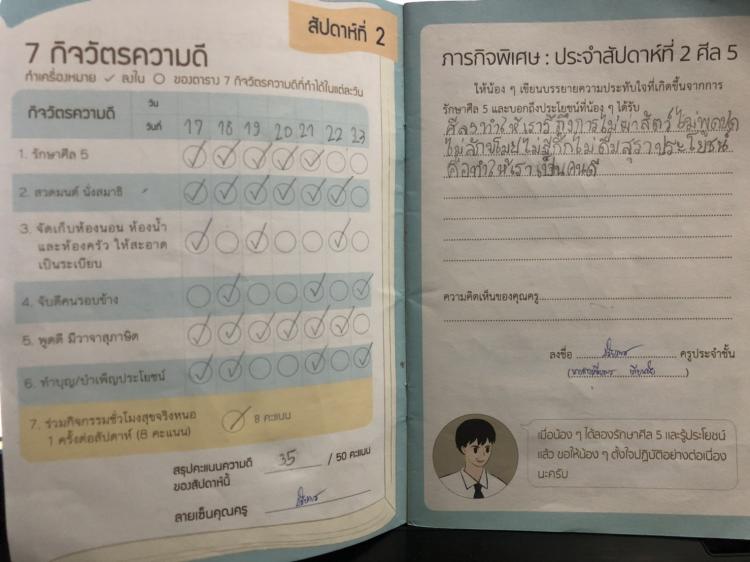 สัปดาห์ที่ 2
7 กิจวัตรความดี
ทำเครื่องหมาย ✓ ลงใน ○ ของตาราง 7 กิจวัตรความดีที่ทำได้ในแต่ละวัน
กิจวัตรความดี
วัน
วันที่ 17 18 19 20 21 22 23
1. รักษาศีล 5
2. สวดมนต์ นั่งสมาธิ
3. จัดเก็บห้องนอน ห้องน้ำ
และห้องครัว ให้สะอาด
เป็นระเบียบ
4. จับดีคนรอบข้าง
5. พูดดี มีวาจาสุภาษิต
6. ทำบุญ/บำเพ็ญประโยชน์
7. ร่วมกิจกรรมชั่วโมงสุขจริงหนอ
1 ครั้งต่อสัปดาห์ (8 คะแนน)
8 คะแนน
สรุปคะแนนความดี 35 / 50 คะแนน
ของสัปดาห์นี้
ลายเซ็นคุณครู
ภารกิจพิเศษ : ประจำสัปดาห์ที่ 2 ศีล 5
ให้น้อง ๆ เขียนบรรยายความประทับใจที่เกิดขึ้นจากการ
รักษาศีล 5 และบอกถึงประโยชน์ที่น้อง ๆ ได้รับ
ทำให้เรารู้ถึงการไม่ฆ่าสัตว์ ไม่พูดปด
ไม่ลักขโมย ไม่ ไม่ดื่มสุรา ประโยชน์
คือทำให้เราเป็นคนดี
ความคิดเห็นของคุณครู
ลงชื่อ ครูประจำชั้น
เมื่อน้อง ๆ ได้ลองรักษาศีล 5 และรู้ประโยชน์
แล้ว ขอให้น้อง ๆ ตั้งใจปฏิบัติอย่างต่อเนื่อง
นะครับ